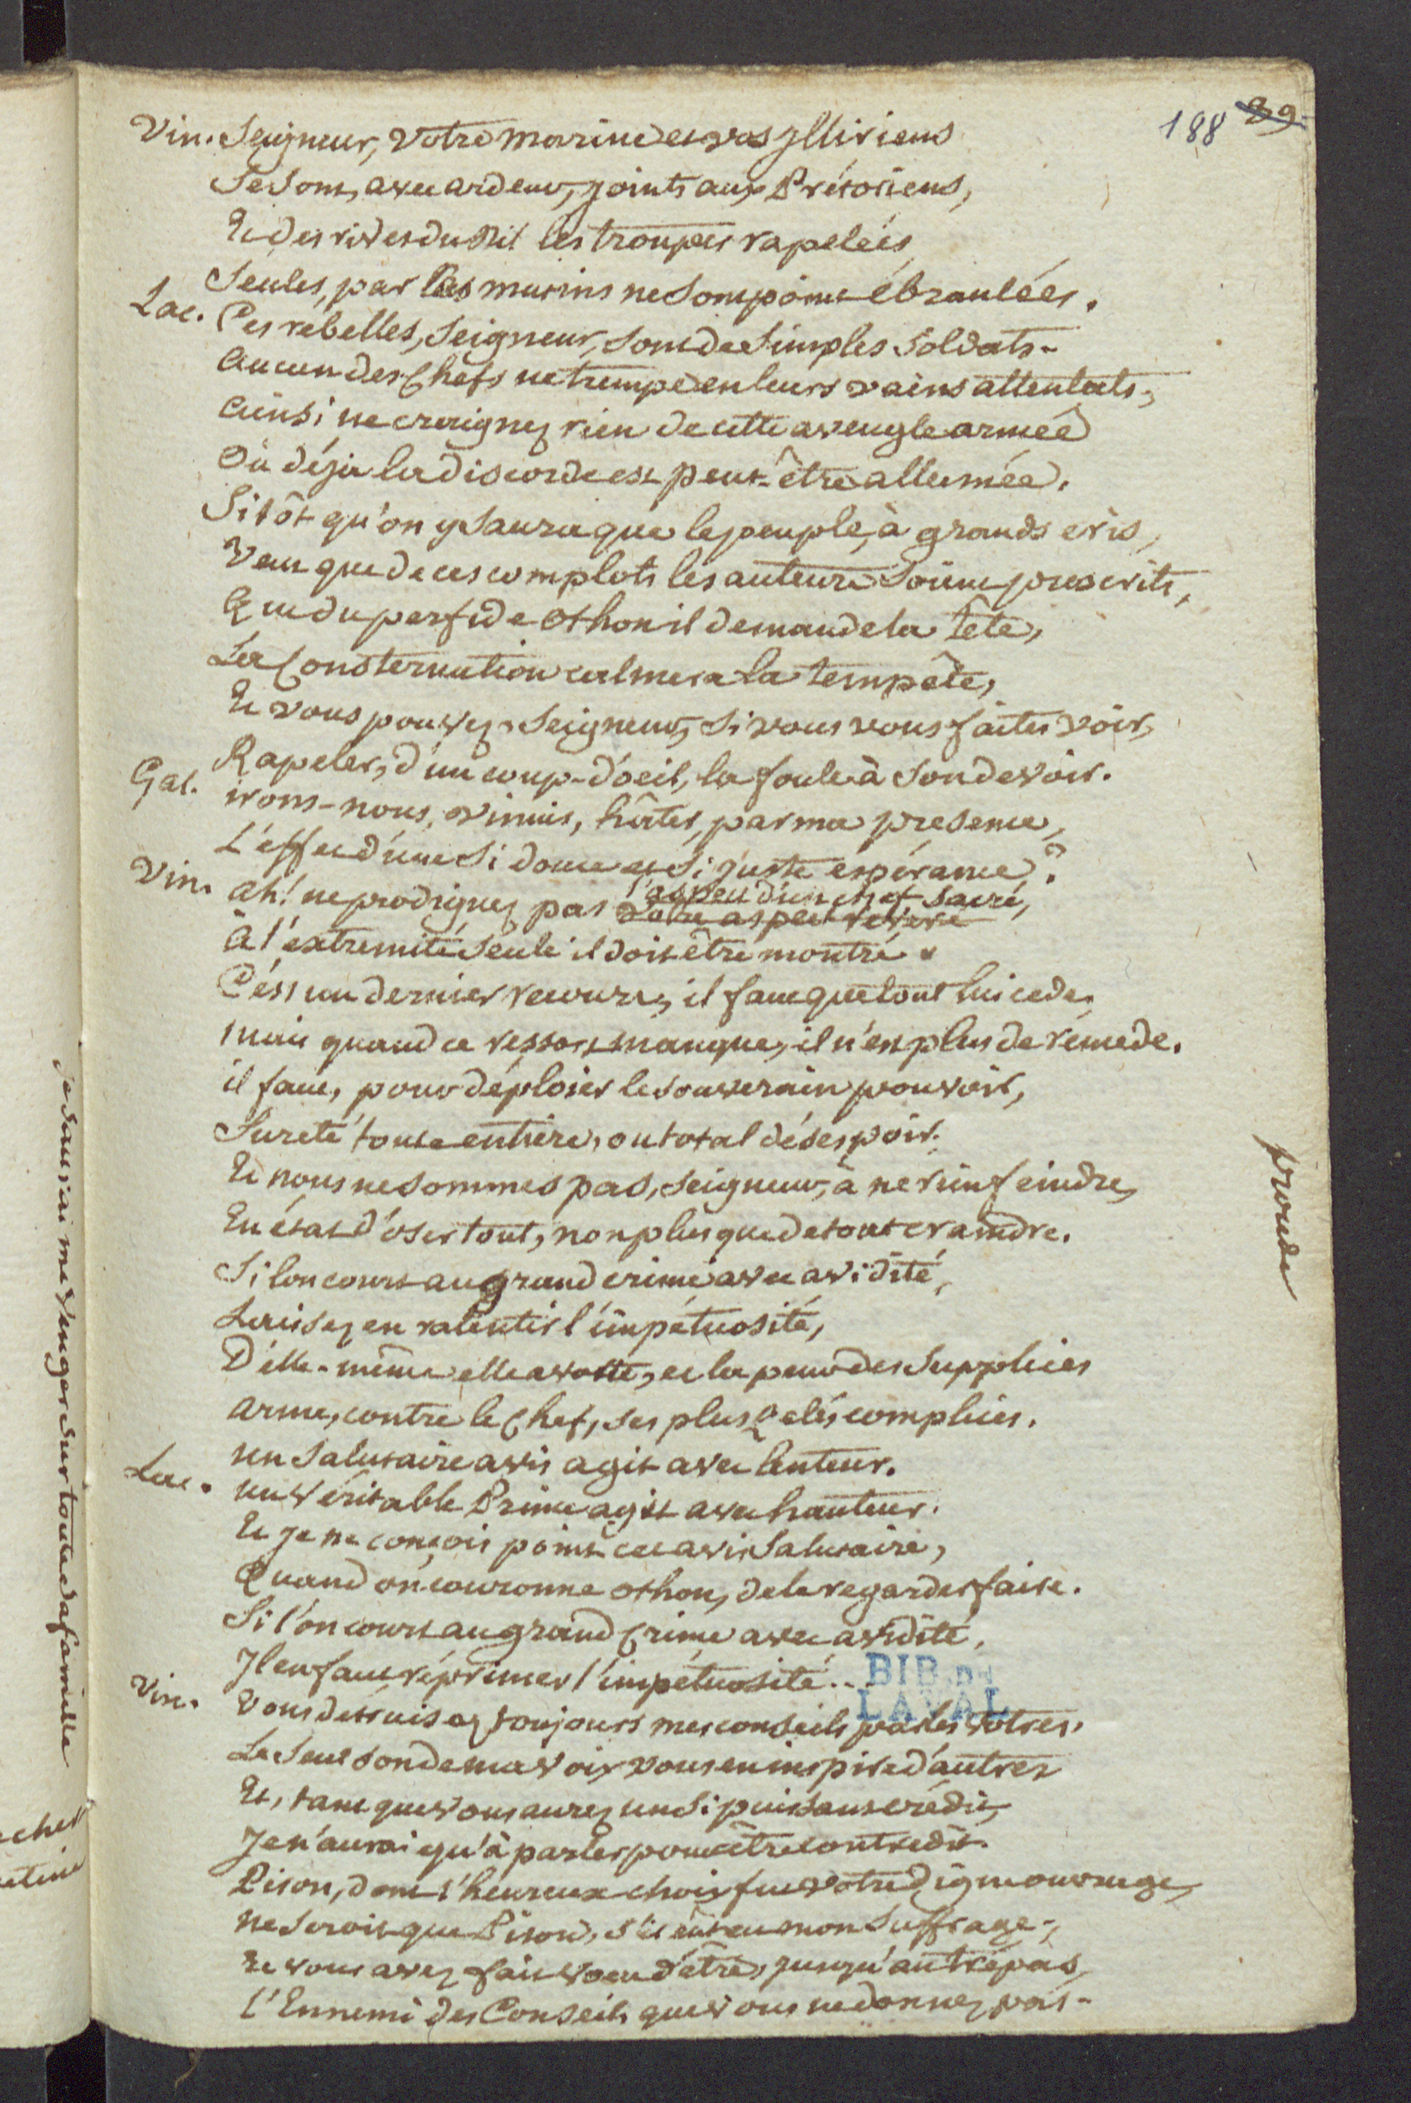 188 39
Vin. Seigneur, Votre marine et vos jlliriens
Se sont, avec ardeur, joints aux Prétoriens,
Et des rives du Nil les troupes rapelées
Seules, par les mutins ne sont point ébranlées.
Lac. Ces rebelles, Seigneur, sont de simples soldats.
Aucun des Chefs ne trempe en leurs vains attentats;
Ainsi ne craignez rien de cette aveugle armée
Où déja la discorde est peut-être allumée.
Sitôt qu'on y saura que le peuple, à grands cris,
Veut que de ces complots les auteurs soient proscrits,
Que du perfide Othon il demande la tête,
La Consternation calmera la tempête,
Et vous pouvez, Seigneur, si vous vous faites voir,
Rapeler, d'un coup-d'oeil, la foule à son devoir.
Gal. irons-nous, Vinius, hâter, par ma presence,
L'effet d'une si douce et si juste espérance?
l'aspect d'un chef sacré,
Vin. Ah! ne prodiguez pas votre aspect révéré
À l'extremité seule il doit être montré.
C'est un dernier recours, il faut que tout lui cede,
mais quand ce ressort manque, il n'est plus de remede.
il faut, pour déploier le souverain pouvoir,
Sureté toute entiere, ou total désespoir;
Et nous ne sommes pas, Seigneur, à ne rien feindre,
En état d'oser tout, non plus que de tout craindre.
Si l'on court au grand crime avec avidité,
Laissez en ralentir l'impétuosité,
D'elle-même elle avorte, et la peur des supplices
arme, contre le Chef, ses plus zelés complices.
un salutaire avis agit avec lenteur.
Lac. un véritable Prince agit avec hauteur.
Et je ne conçois point cet avis salutaire,
Quand on couronne Othon, de le regarder faire.
Si l'on court au grand Crime avec avidité,
Il en faut réprimer l'impétuosité..
Vin. Vous détruisez toujours mes conseils par les votres,
Le seul son de ma voix vous en inspire d'autres
Et, tant que vous aurez un si puissant crédit,
Je n'aurai qu'à parler pour être contredit.
Pison, dont l'heureux choix fut votre digne ouvrage,
Ne seroit que Pison, s'il eût eu mon suffrage;
et vous avez fait voeu d'être, jusqu'au trépas,
L'Ennemi des Conseils que vous ne donnez pas.
BIB. DE
LAVAL
je saurai me venger sur toute sa famille